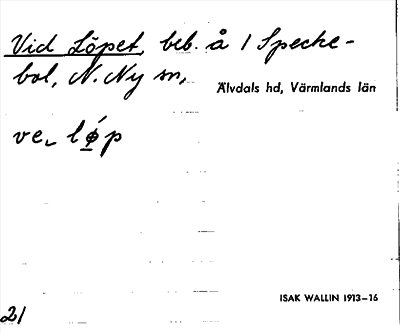 Vid Löpet, beb. å 1 Specke-
bol, N. Ny sn,
Älvdals hd, Värmlands län
ve_ lǿp
ISAK WALLIN 1913–16
21